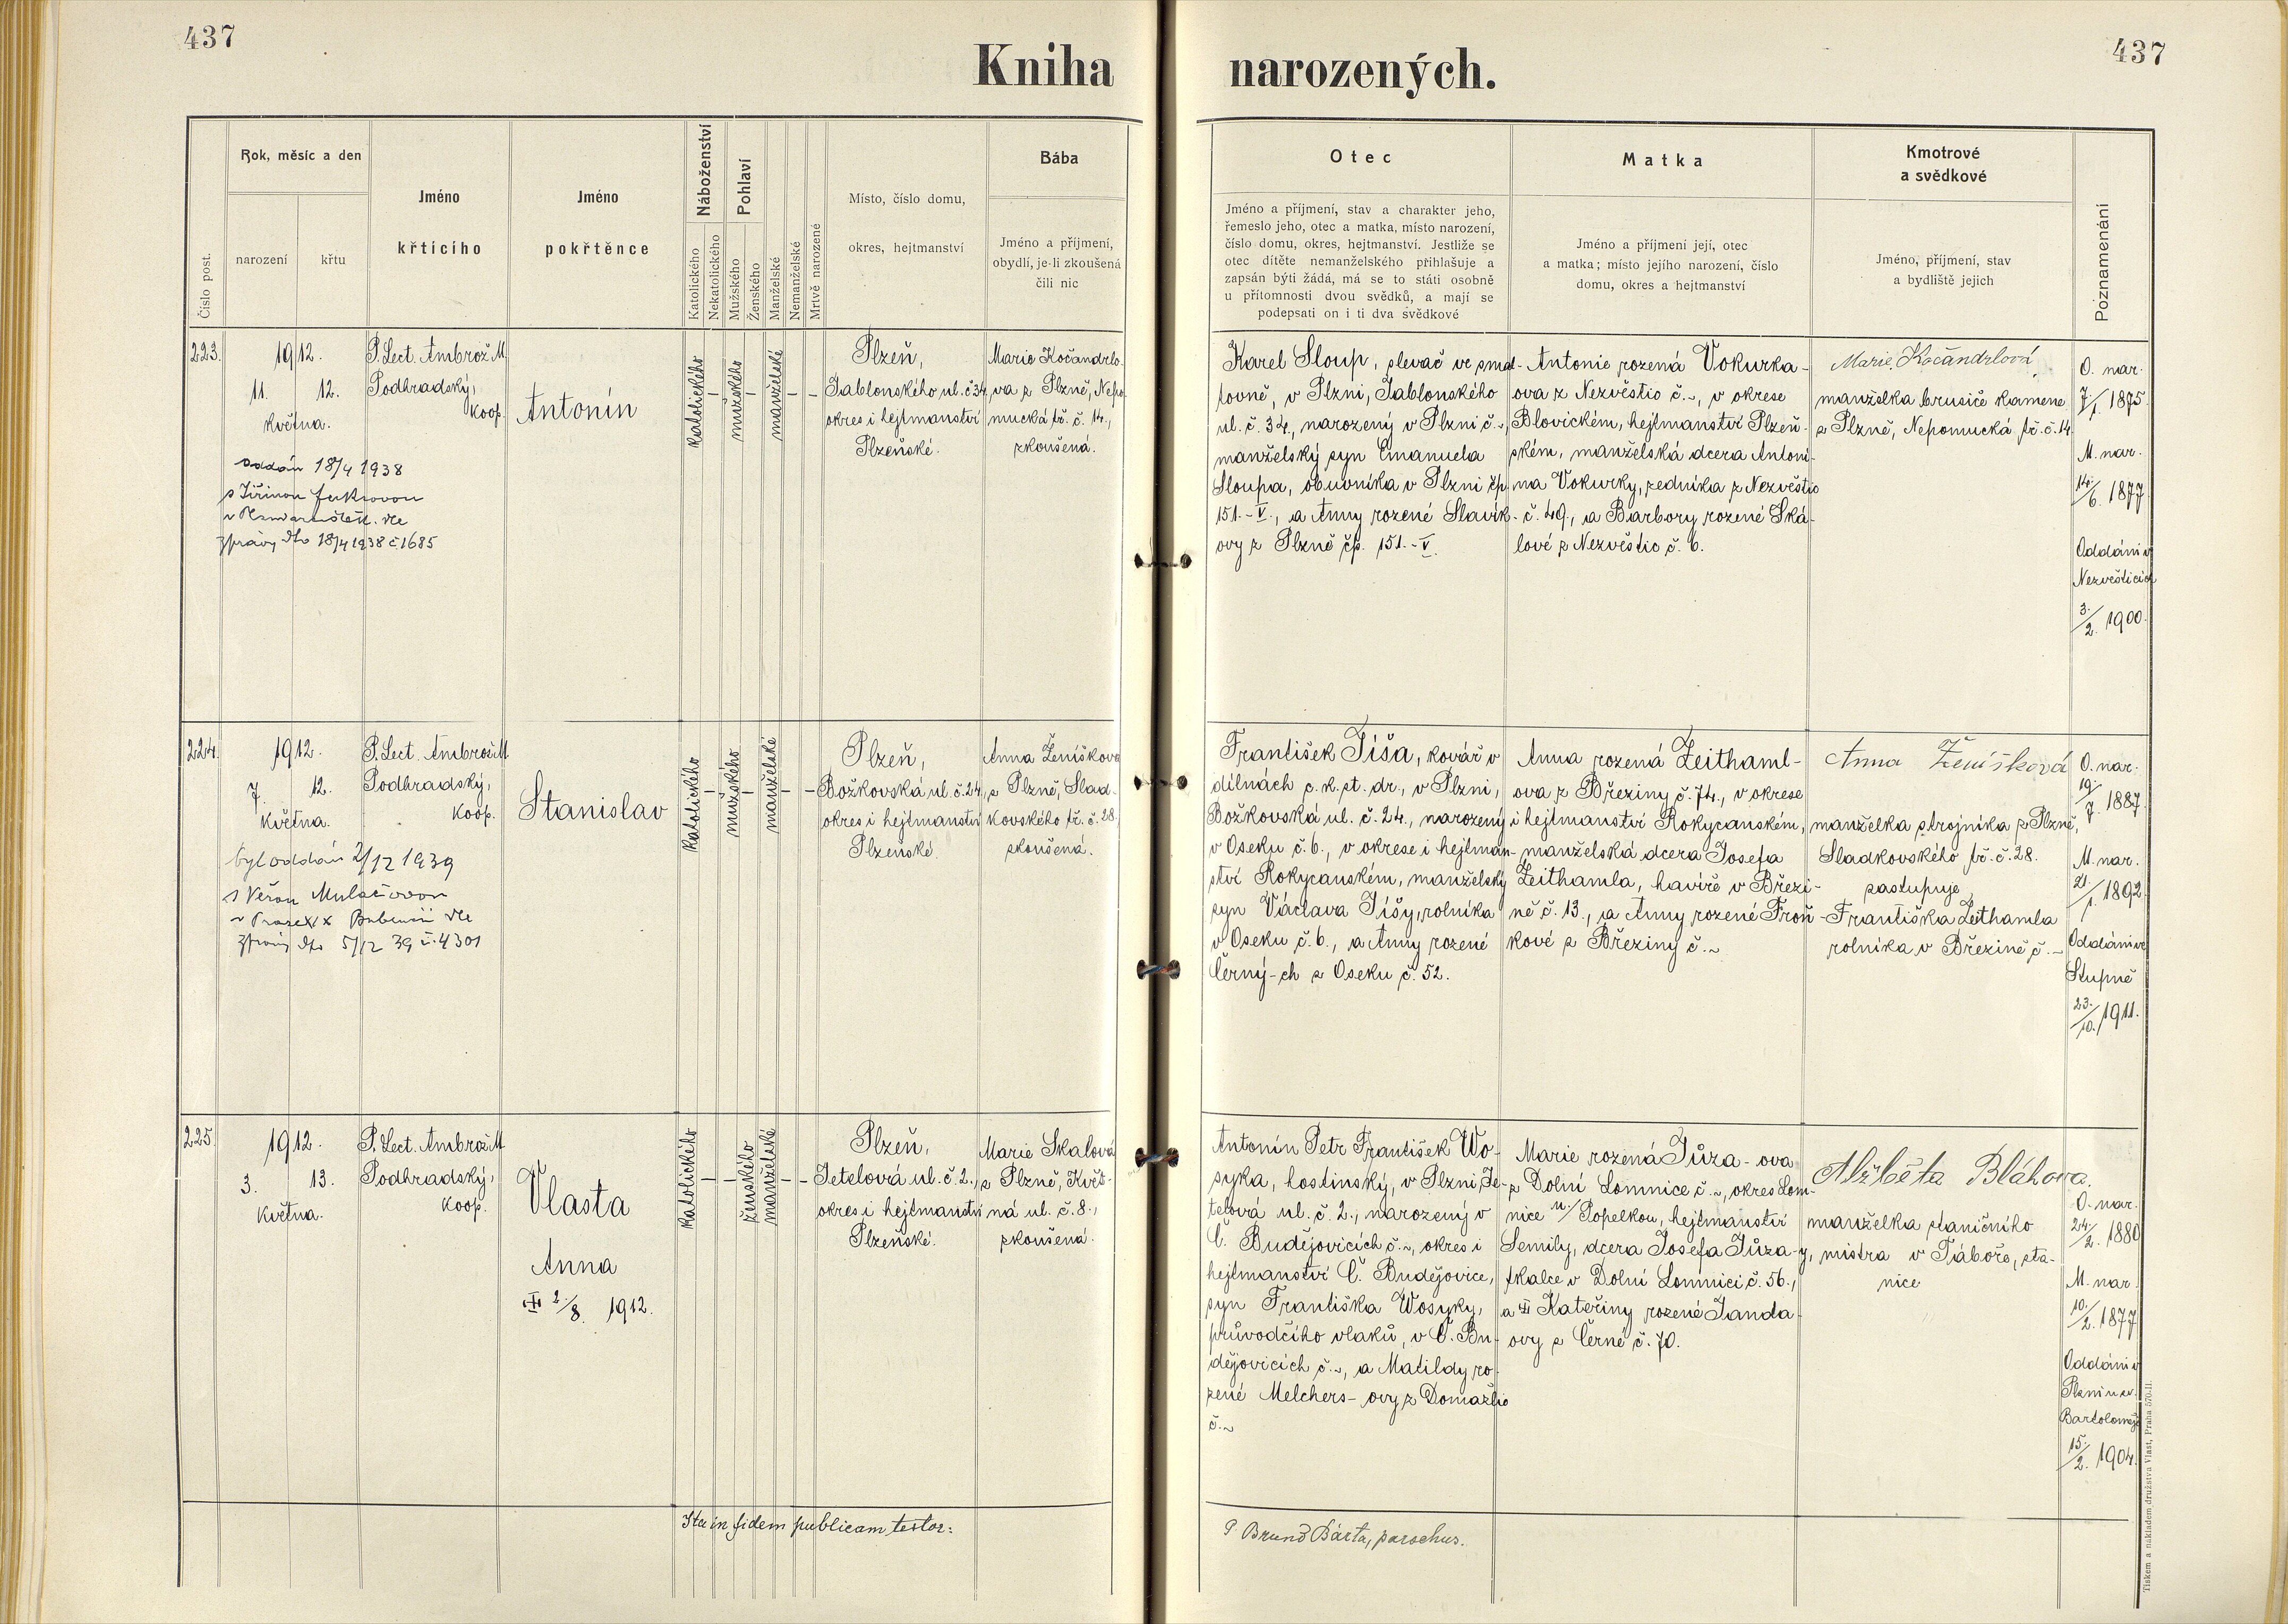 437
437
Kniha narozených.
Číslo post.
Rok, měsíc a den
narození
křtu
Jméno
křtícího
Jméno
pokřtěnce
Náboženství
Katolického
Nekatolického
Pohlaví
Mužského
Ženského
Manželské
Nemanželské
Mrtvě narozené
Místo, číslo domu,
okres, hejtmanství
Bába
Jméno a příjmení,
obydlí, je-li zkoušená
čili nic
Otec
Jméno a příjmení, stav a charakter jeho,
řemeslo jeho, otec a matka, místo narození,
číslo domu, okres, hejtmanství. Jestliže se
otec dítěte nemanželského přihlašuje a
zapsán býti žádá, má se to státi osobně
u přítomnosti dvou svědků, a mají se
podepsati on i ti dva svědkové
Matka
Jméno a příjmení její, otec
a matka; místo jejího narození, číslo
domu, okres a hejtmanství
Kmotrové
a svědkové
Jméno, příjmení, stav
a bydliště jejich
Poznamenání
223.
1912.
11. 12.
května.
oddán 18/4 1938
s Jiřinou
zprávy dto 18/4 1938 č 1685
P. Lect. Ambrož M.
Podhradský,
koop.
Antonín
katolického
–
mužského
–
manželské
–
–
Plzeň,
Jablonského ul. č 34,
okres i hejtmanství
Plzeňské.
Marie Kočandrlo-
va z Plzně, Nepo
mucká tř. č. 14.,
zkoušená.
Karel Sloup, slevač ve smal-
tovně, v Plzni, Jablonského
ul. č. 34., narozený v Plzni č. ~,
manželský syn Emanuela
Sloupa, obuvníka v Plzni čp.
151.-V., a Anny rozené Slavík-
ovy z Plzně čp. 151.-V.
Antonie rozená Vokurka-
ova z Nezvěstic č. ~, v okrese
Blovickém, hejtmanství Plzeň-
ském, manželská dcera Antoni-
na Vokurky, zedníka z Nezvěstic
č. 49., a Barbory rozené Ská-
lové z Nezvěstic č. 6.
Marie Kočandrlová,
manželka brusiče kamene
z Plzně, Nepomucká tř. č. 14.
O. nar.
7/1. 1875.
M. nar.
14./6. 1877.
Oddáni v
Nezvěsticích
3./2. 1900.
224.
1912.
7. 12.
května.
byl oddán 2/12 1939
s Věrou Mulačovou
v Praze XIX Bubenči dle
zprávy dto 5/12 39 č. 4301
P. Lect. Ambrož M
Podhradský,
koop.
Stanislav
katolického
–
mužského
–
manželské
–
–
Plzeň,
Božkovská ul. č. 24.,
okres i hejtmanství
Plzeňské.
Anna Ženíškova
z Plzně, Slad-
kovského tř. č. 28.
zkoušená.
František Jíša, kovář v
dílnách c. k. st. dr., v Plzni,
Božkovská ul. č. 24., narozený
v Oseku č. 6., v okrese i hejtman-
ství Rokycanském, manželský
syn Václava Jíšy, rolníka
v Oseku č. 6., a Anny rozené
Černý-ch z Oseku č. 52.
Anna rozená Zeithaml-
ova z Březiny č. 74., v okrese
i hejtmanství Rokycanském,
manželská dcera Josefa
Zeithamla, havíře v Březi-
ně č. 13., a Anny rozené Froň-
kové z Březiny č. ~
Anna Ženíšková
manželka strojníka z Plzně,
Sladkovského tř. č. 28.
zastupuje
Františka Zeithamla
rolníka v Březině č. ~
O. nar.
19/7. 1887.
M. nar.
21./1. 1892.
Oddáni ve
Stupně
23./10. 1911.
225.
1912.
3. 13.
května.
P. Lect. Ambrož M
Podhradský,
koop.
Vlasta
Anna
2./8. 1912.
katolického
–
–
ženského
manželské
–
–
Plzeň,
Jetelová ul. č. 2.,
okres i hejtmanství
Plzeňské.
Marie Skalová
z Plzně, Květ-
ná ul. č. 8.,
zkoušená.
Antonín Petr František Wo-
syka, hostinský, v Plzni, Je-
telová ul. č. 2., narozený v
Č. Budějovicích č. ~, okres i
hejtmanství Č. Budějovice,
syn Františka Wosyky,
průvodčího vlaků, v Č. Bu-
dějovicích č. ~, a Matildy ro-
zené Melchers-ovy z Domažlic
č. ~
Marie rozená Jůza-ova
z Dolní Lomnice č. ~, okres Lom-
nice n/Popelkou, hejtmanství
Semily, dcera Josefa Jůza-y,
tkalce v Dolní Lomnici č. 56.,
a Kateřiny rozené Janda-
ovy z Černé č. 70.
Alžběta Bláhova.
manželka staničního
mistra v Táboře, sta-
nice
O. nar.
24/2. 1880
M. nar.
10./2. 1877
Oddáni v
Plzni u sv.
Bartoloměje
15./2. 1904.
Ita in fidem publicam testor:
P. Bruno Bárta, parochus.
Tiskem a nákladem družstva Vlast, Praha 570-II.